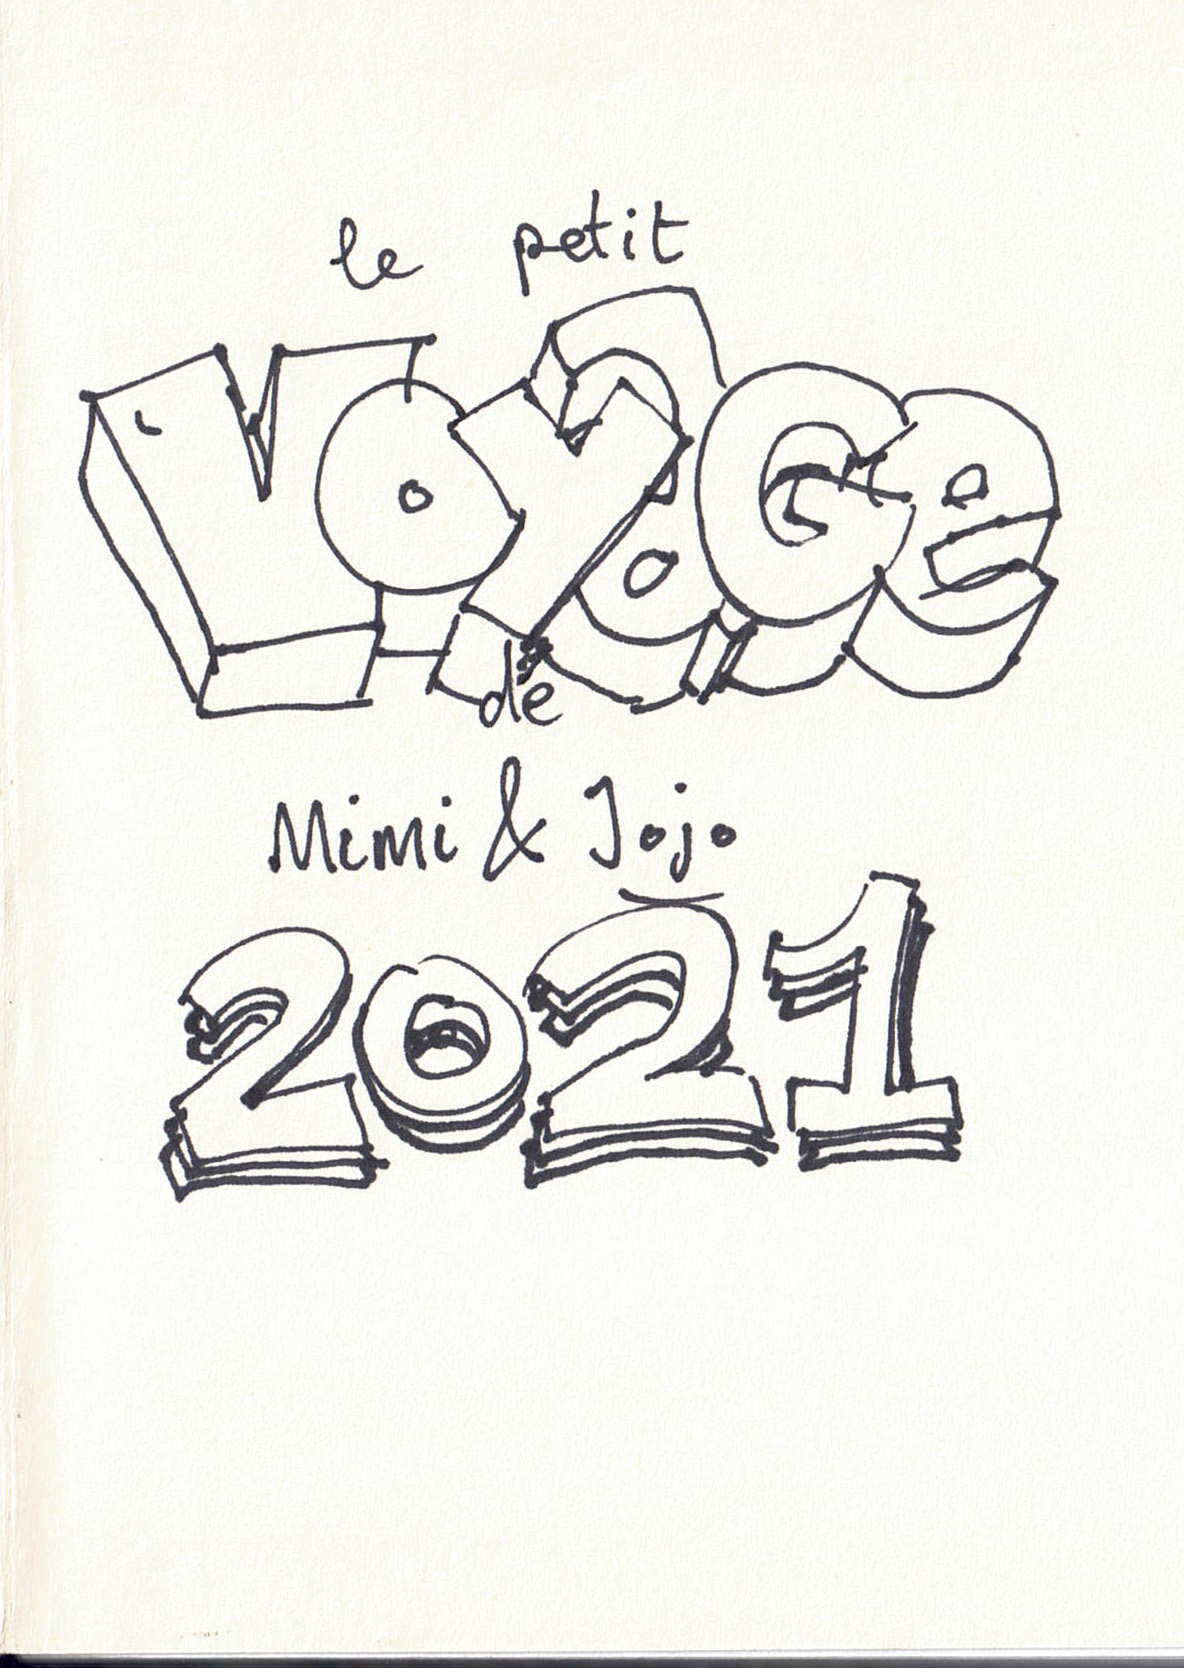 le petit
VoyaGe
de
Mimi & Jojo
2021